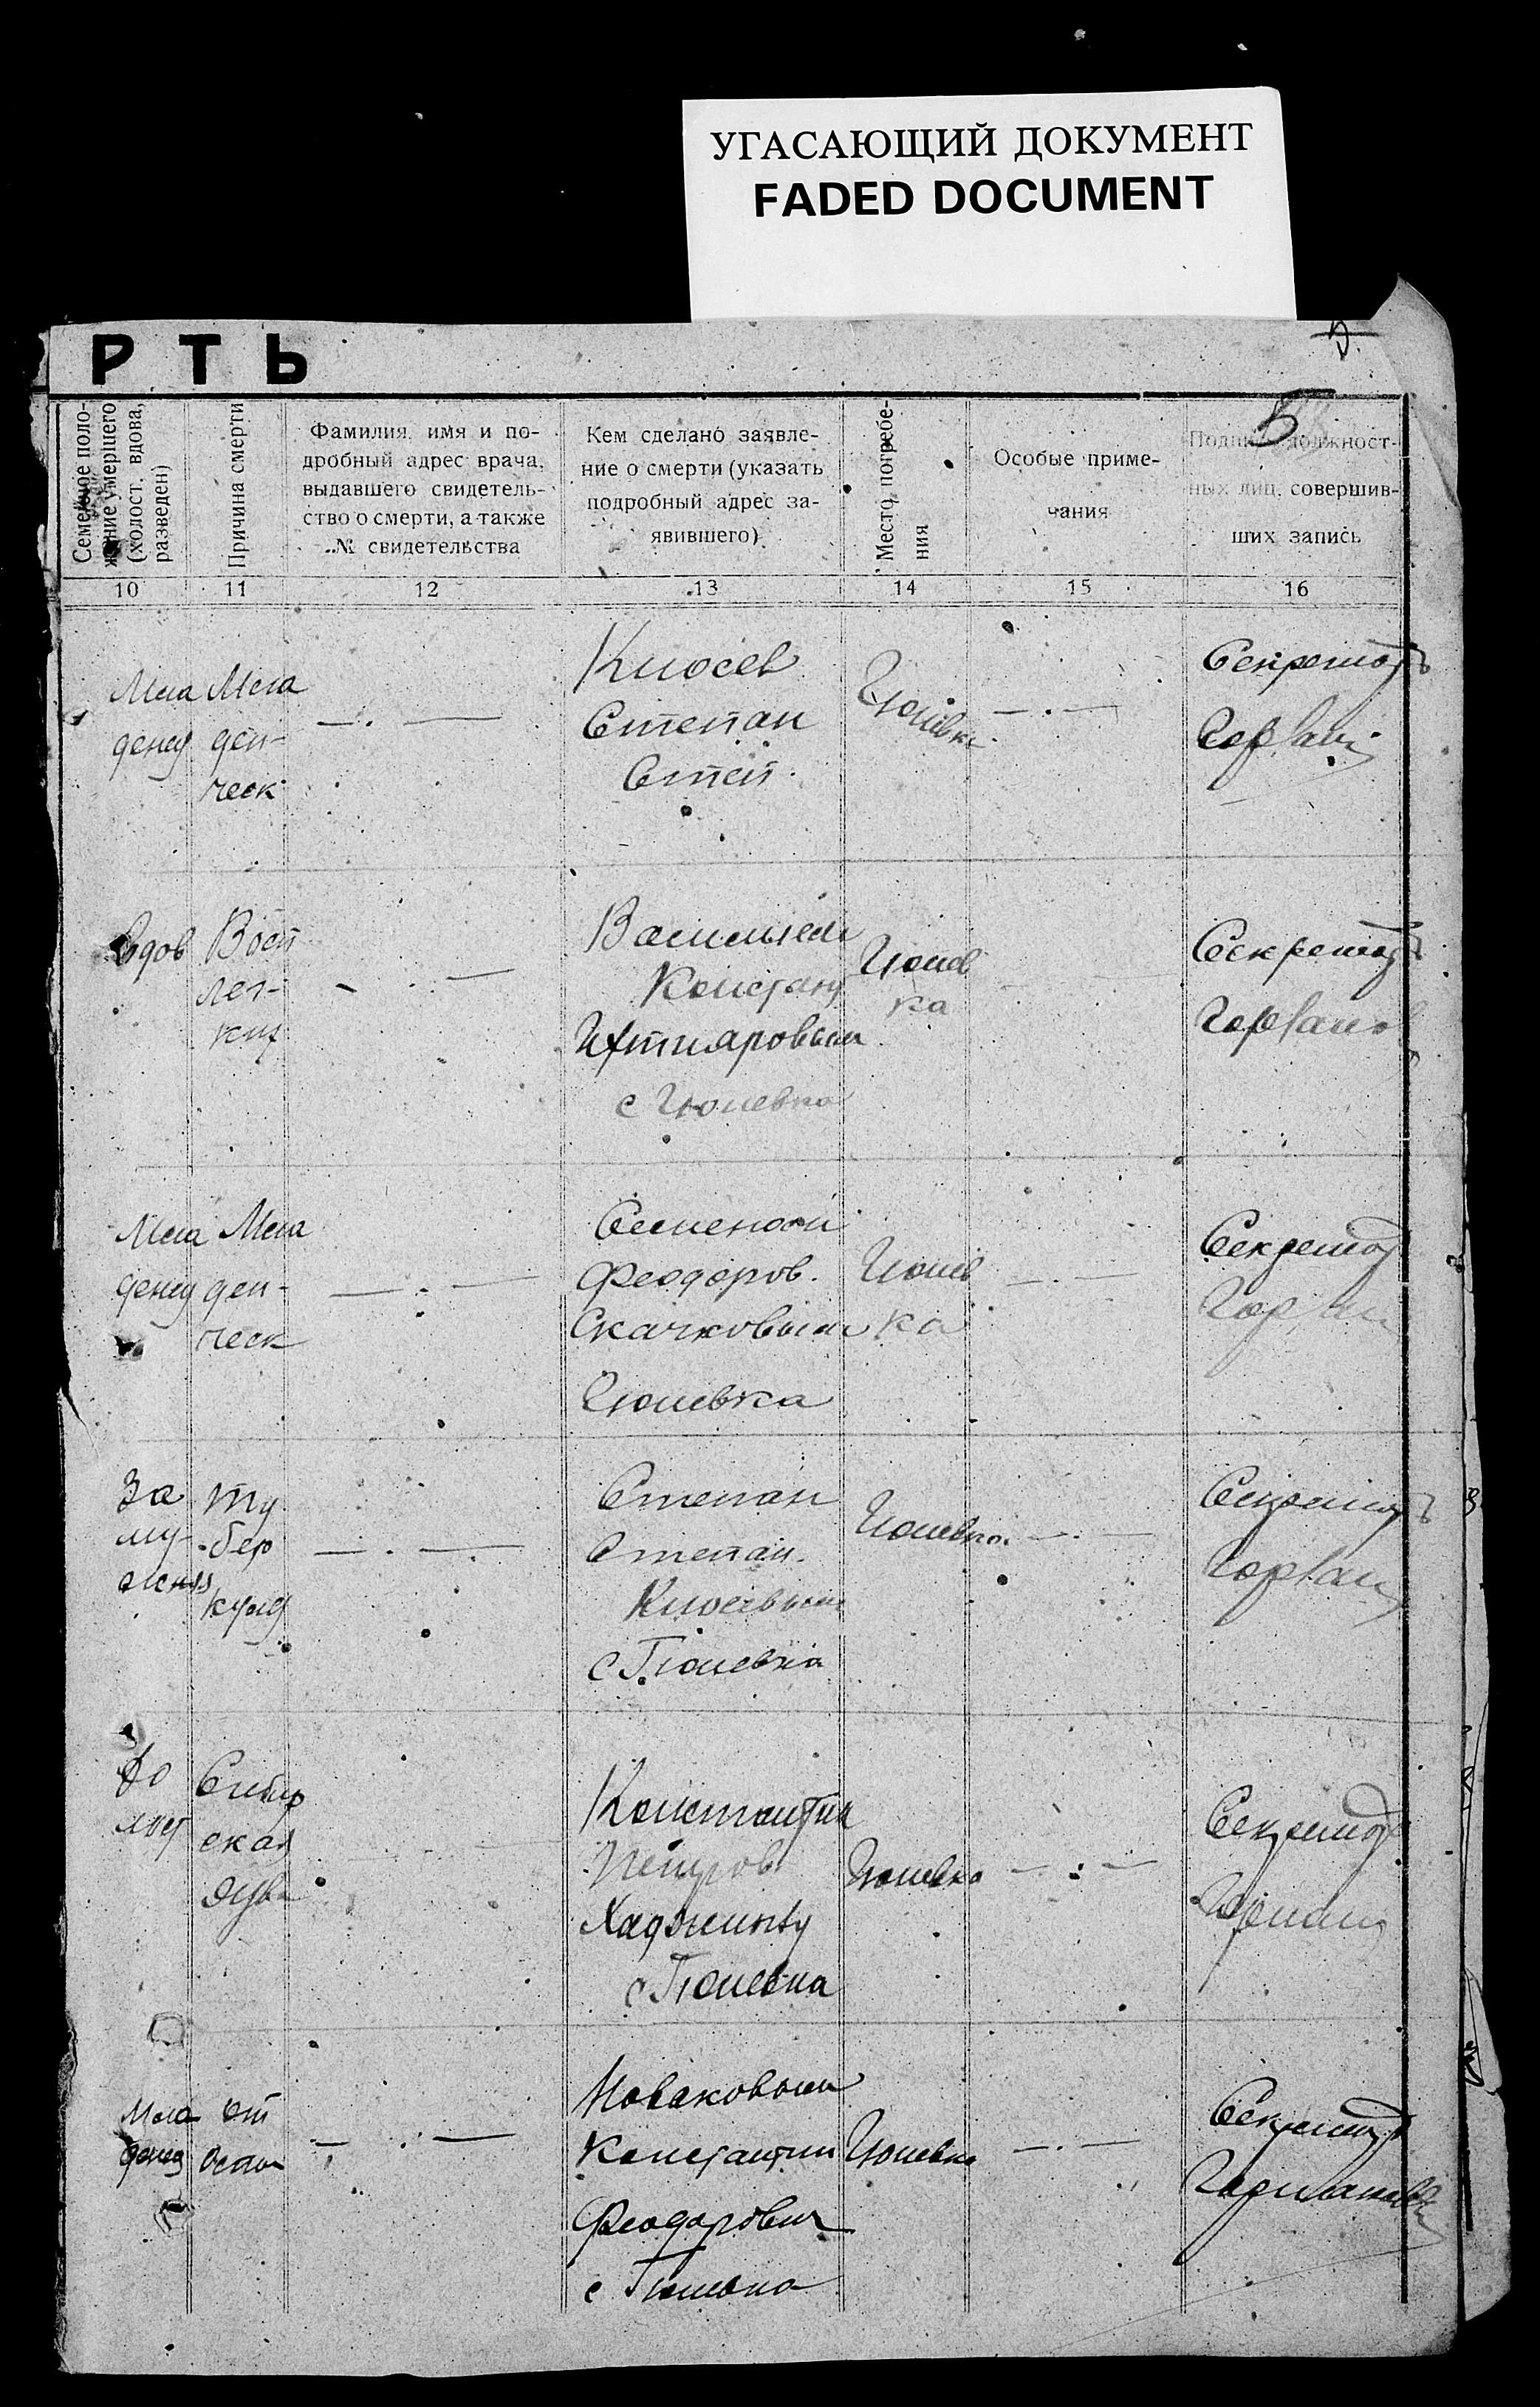 УГАСАЮЩИЙ ДОКУМЕНТ
FADED DOCUMENT
Р Т Ь
5.
5
Семейное поло-
жение умершего
(холост. вдова,
разведен)
Причина смерти
Фамилия, имя и по-
дробный адрес врача,
выдавшего свидетель-
ство о смерти, а также
№ свидетельства
Кем сделано заявле-
ние о смерти (указать
подробный адрес за-
явившего)
Место погребе-
ния
Особые приме-
чания
Подписи должност-
ных лиц, совершив-
ших запись
10 11 12 13 14 15 16
Мла
денец
Мла
ден-
ческ
— . —
Кюсев
Степан
Степ.
Гюневка
— . —
Секретарь
Вдов
Восп
лег-
ких
— . —
Васильем
Констант
Ихтияровым
с Гюневка
Гюнев
ка
Секретарь
Мла
денец
Мла
ден-
ческ
— . —
Семеном
Феодоров.
Скачковым
Гюневка
Гюнев
ка
— . —
Секретарь
За
му-
жняя
Ту
бер
кулез
— . —
Степан
Степан.
Кюсевым
с Гюневка
Гюневка
— . —
Секретарь
Хо
лост
Сибир
ская
язва
Константин
Петров
с Гюневка
Гюневка
— . —
Секретарь
Мла
денец
от
Оспы
— . —
Новаковым
Константин
Феодорович
с Гюневка
Гюневка
— . —
Секретарь